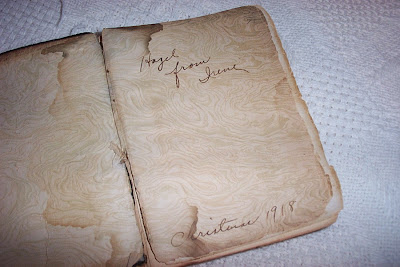 Hazel
from
Irene
Christmas 1918